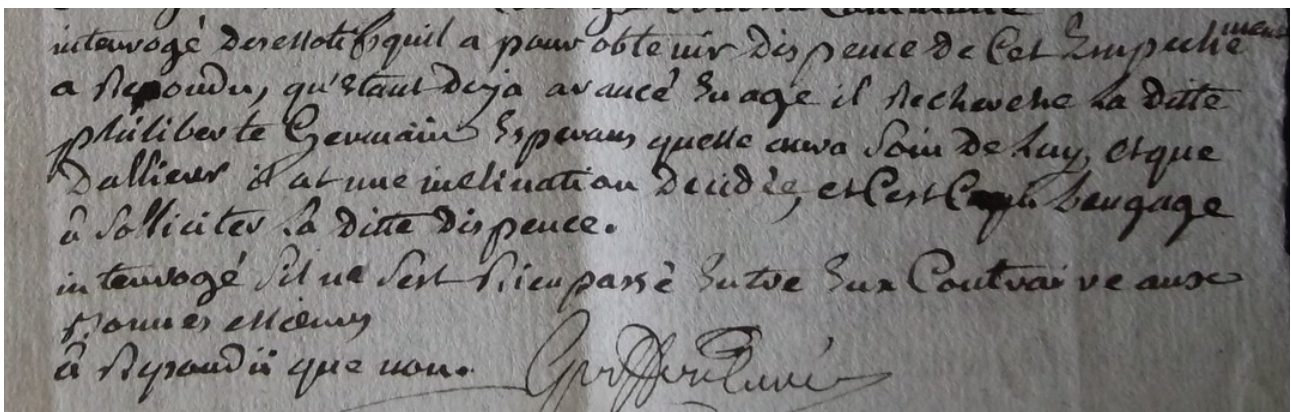 interrogé des motifs quil a pour obtenir dispence de Cet Empeche ment
a Repondu, qu'Etant deja avancé En age il Recherche La ditte
philiberte Germain Esperans quelle aura Soin de Luy, et que
dallieur il at une inclination decidée, et C'est Ce qui Lengage
à Solliciter La ditte dispence.
interrogé Sil ne Sest Rien passé Entre Eux Contraire aux
Bonnes Moeurs
à Repondu que non.